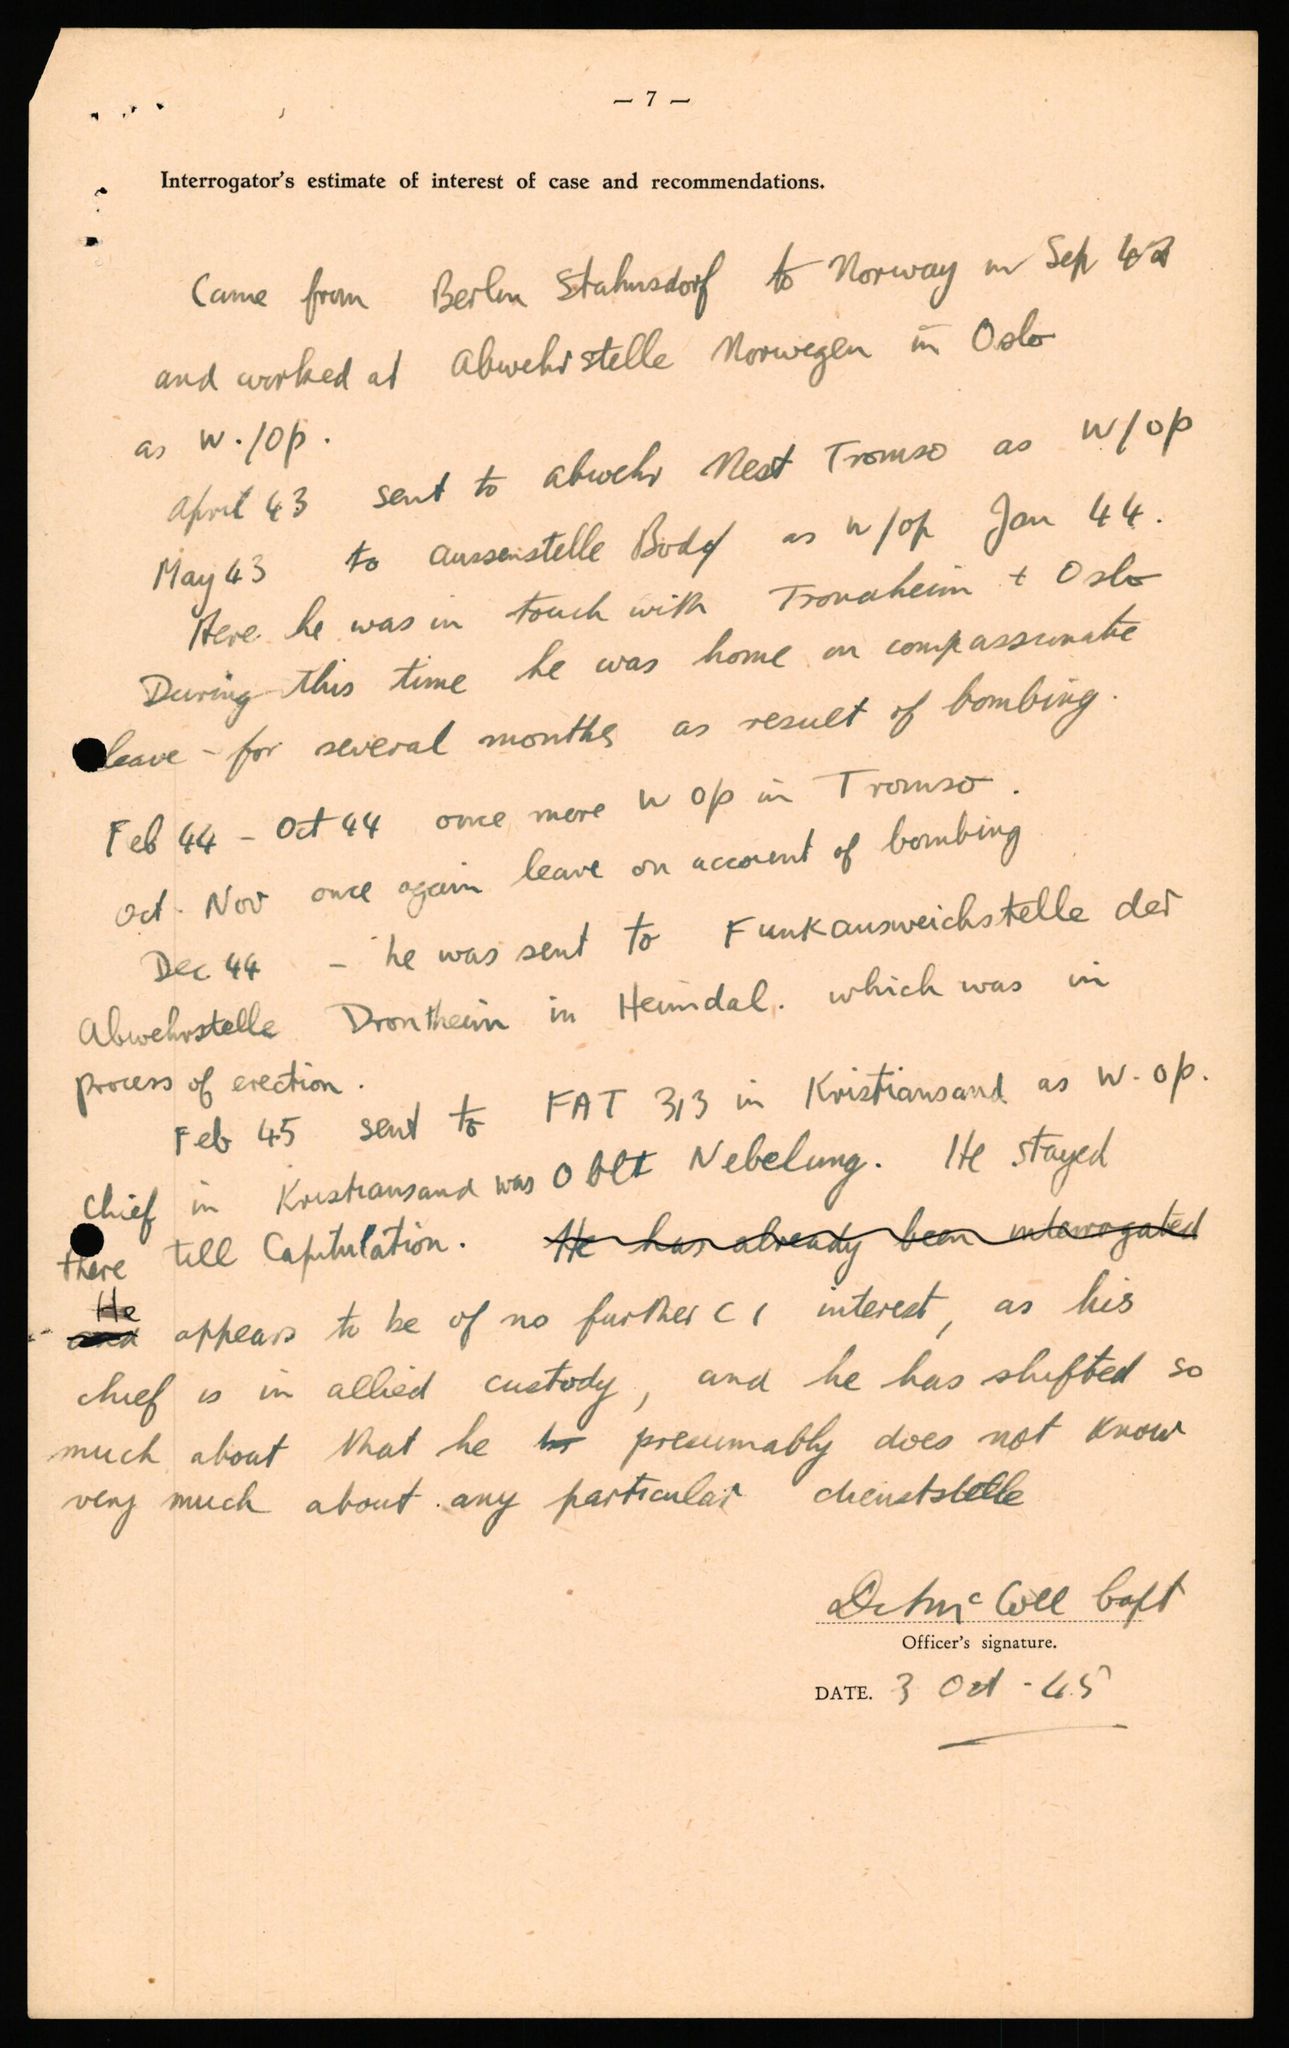 — 7 —
Interrogator's estimate of interest of case and recommendations.
Came from Berlin Stahnsdorf to Norway in Sep 42
and worked at Abwehrstelle Norwegen in Oslo
as W./Op.
April 43 sent to Abwehr Nest Tromso as W/op
May 43 to Aussenstelle Bodø as W/op Jan 44.
Here he was in touch with Trondheim + Oslo
During this time he was home on compassionate
leave – for several months as result of bombing.
Feb 44 – Oct 44 once more W op in Tromso.
Oct - Nov once again leave on account of bombing
Dec 44 – he was sent to Funkausweichstelle der
Abwehrstelle Drontheim in Heimdal. which was in
process of erection.
Feb 45 sent to FAT 313 in Kristiansand as W. op.
Chief in Kristiansand was Oblt Nebelung. He stayed
there till Capitulation. He has already been interrogated
He and appears to be of no further C I interest, as his
chief is in allied custody, and he has shifted so
much about that he presumably does not know
very much about any particular dienststelle
McColl Capt
Officer's signature.
DATE. 3 Oct - 45